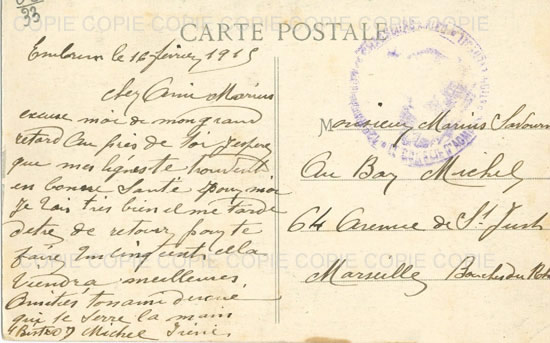 CARTE POSTALE
Embrun le 16 février 1915
cher Ami Marius
excuse moi de mon grand
retard au près de toi J'espere
que mes lignes te trouvent
en bonne Santé pour moi
Je vais très bien il me tarde
detre de retour pour te
faire un cinq cent cella
viendra meilleures
Amities ton ami
qui te serre la main
Michel
Monsieur Marius
Au Bar Michel
64 Avenue de St Just
Marseille Bouches du Rhône
COPIE COPIE COPIE COPIE COPIE